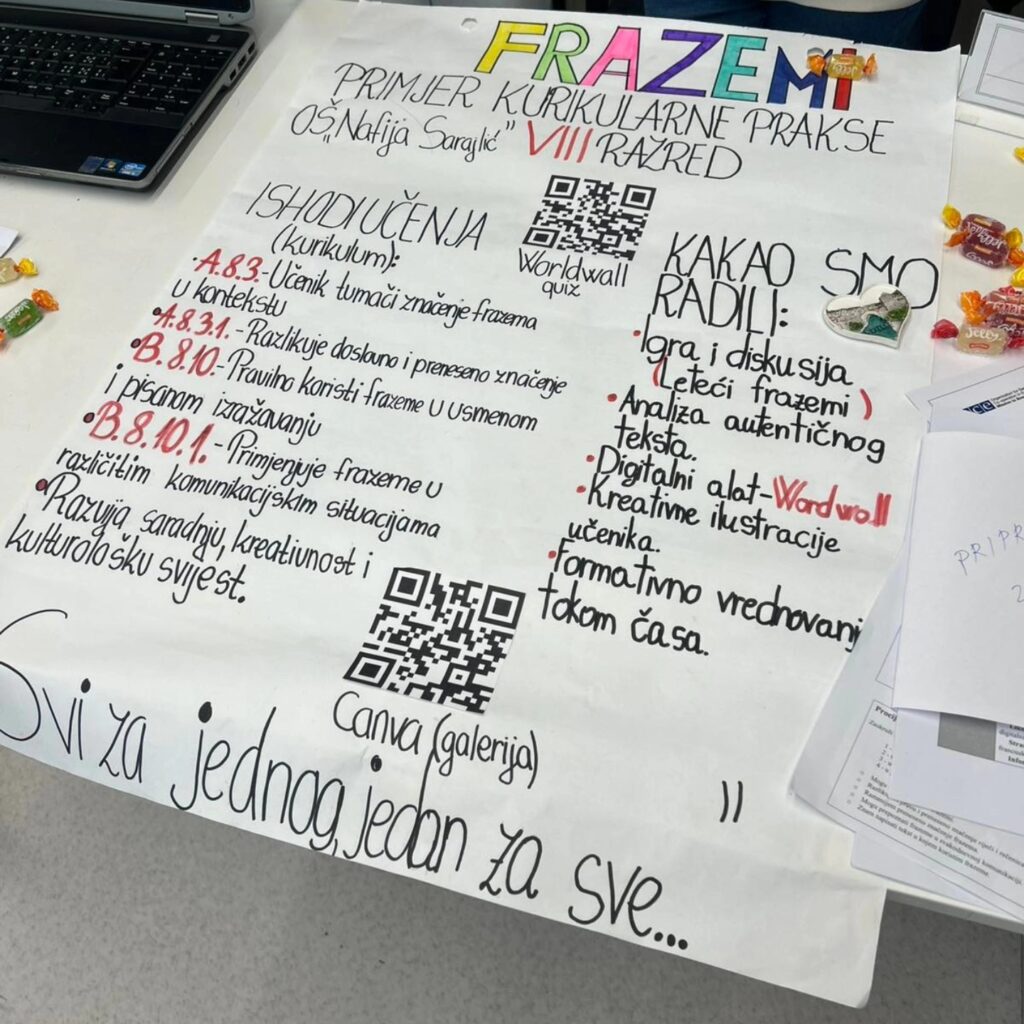 FRAZEMI
PRIMJER KURIKULARNE PRAKSE
OŠ „Nafija Sarajlić" VIII RAZRED
ISHODI UČENJA
(kurikulum):
• A.8.3.-Učenik tumači značenje frazema
u kontekstu
• A.8.3.1.-Razlikuje doslovno i preneseno značenje
• B.8.10-Pravilno koristi frazeme u usmenom
i pisanom izražavanju
• B.8.10.1.-Primjenjuje frazeme u
različitim komunikacijskim situacijama
• Razvija saradnju, kreativnost i
kulturološku svijest.
Worldwall
quiz
KAKAO SMO
RADILI:
• Igra i diskusija
(Leteći frazemi)
• Analiza autentičnog
teksta.
• Digitalni alat-Wordwall
• Kreativne ilustracije
učenika.
• Formativno vrednovanj
tokom časa.
Canva (galerija)
Svi za jednog, jedan za sve... "
Jelly
PRIPR
2